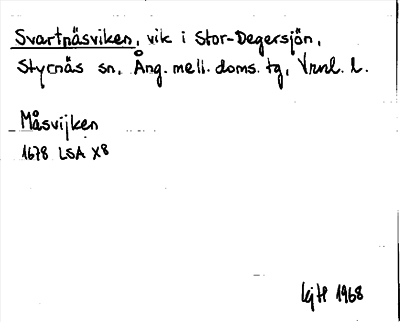 Svartnäsviken, vik i Stor-Degersjön,
Styrnäs sn, Ång. mell. doms. tg, Vrnl. l.
Måsvijken
1678 LSA X8
1968